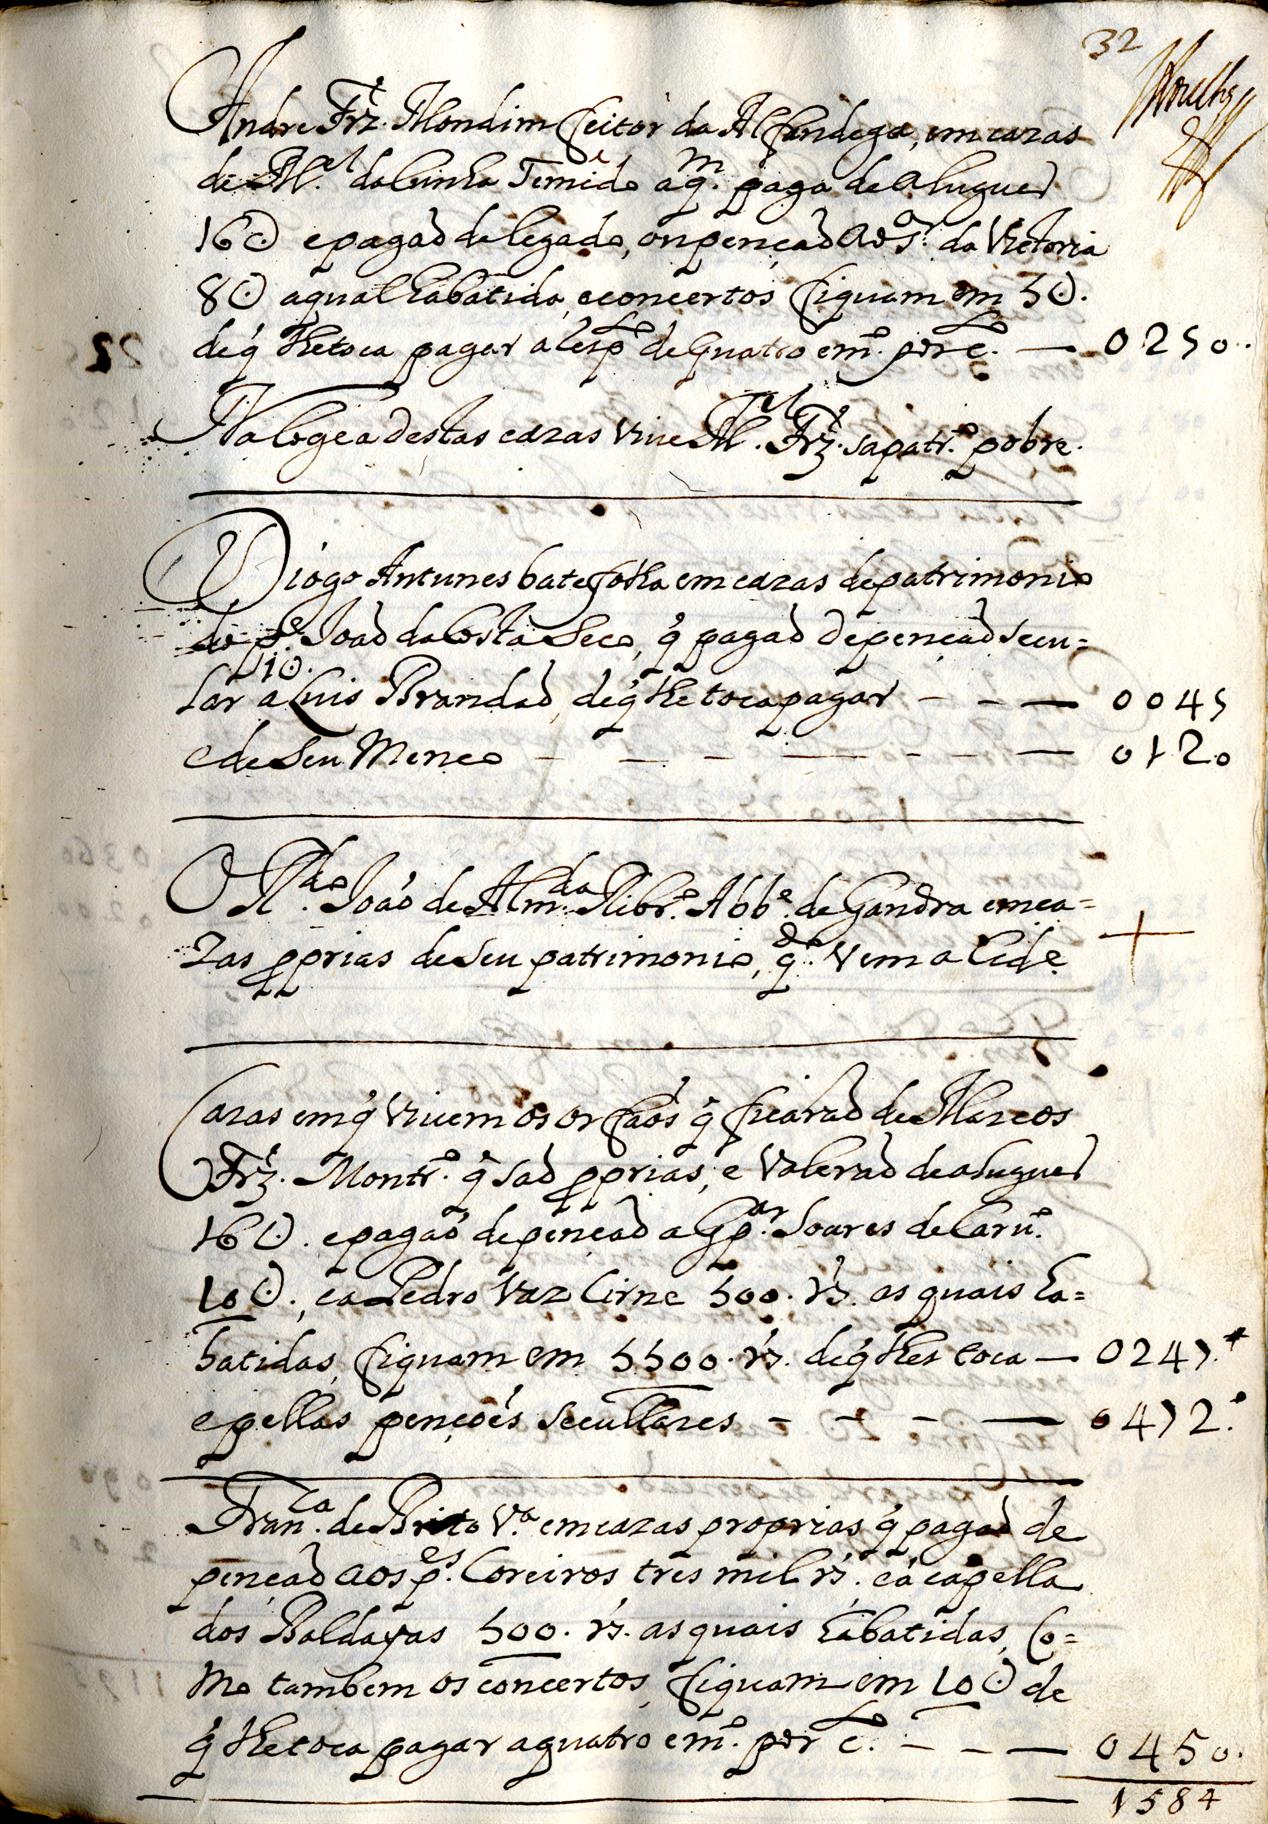 32
Andre Frz. Mondim feitor da Alfandega, em cazas
de M.el da Cunha Temido aq.m paga de aluguer
16U e pagaõ de legado, ou pençaõ a ña s.ra da Victoria
8U a qual habatida, e concertos fiquam em 5U.
de q̃ lhe toca pagar a resp.to de quatro e m.o por c.to — 0250.
Na logea destas cazas vive M.el Frz. sapatr.o pobre.
Diogo Antunes bate folha em cazas de patrimonio
do p.e Joaõ da Costa Seco, q̃ pagaõ de pençaõ secu=
1U.
lar a Luis Brandaõ, de q̃ lhe toca pagar - - — 0045
e de seu Meneo - - - — - - — 0120
O R.do Joaõ de Alm.da Ribr.o Abb.e de Gandra em ca=
zas pprias de seu patrimonio, q.do vem a Cid.e +
Cazas em q̃ vivem os orfaõs q̃ ficaraõ de Marcos
Frz. Montr.o q̃ saõ pprias, e valeraõ de aluguer
16U. e pagaõ de pençaõ a Gp.ar Soares de Carv.o
10U., e a Pedro Vaz Cirne 500. rs. as quais ha=
batidas, fiquam em 5500. rs. de q̃ lhes toca — 0247.
e pellas pençoẽs secullares - - - — 0472.
Fran.ca de Brito V.a em cazas proprias q̃ pagaõ de
pençaõ aos p.es Coreiros tres mil rs. e á capella
dos Baldayas 500. rs. as quais habatidas, Co=
mo tambem os concertos, fiquam em 10U de
q̃ lhe toca pagar a quatro e m.o por c.to - - — 0450.
1584